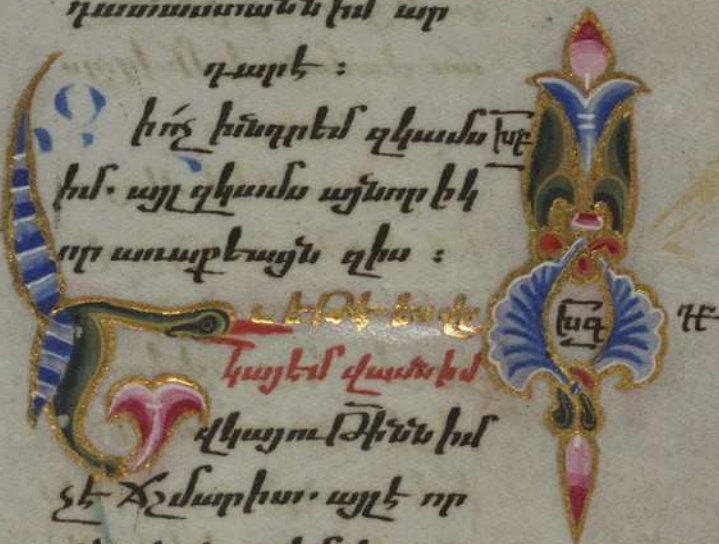 դատաստանն իմ ար
դարէ ։
Զի ոչ խնդրեմ զկամս խբ
իմ. այլ զկամս այնորիկ
որ առաքեացն զիս ։
Եւ եթէ ես վ խգ
կայեմ վասն իմ
վկայութիննն իմ
չէ ճշմարիտ. այլ է որ